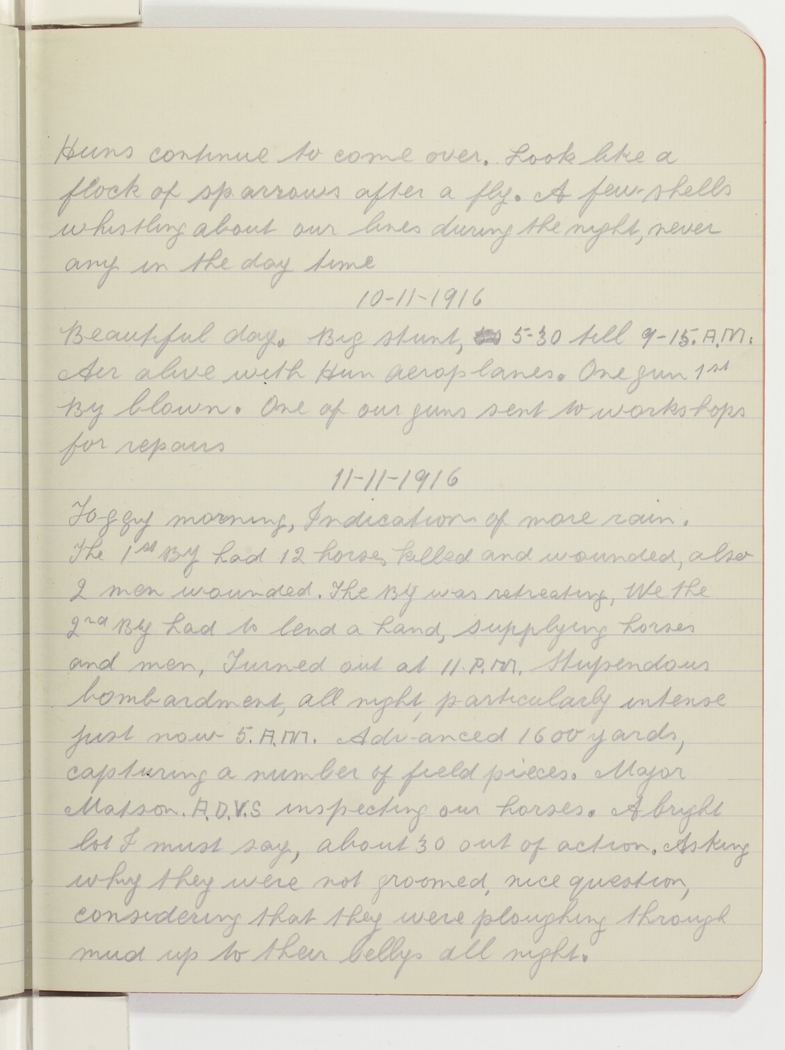 Huns continue to come over. Look like a
flock of sparrows after a fly. A few shells
whistling about our lines during the night, never
any in the day time
10-11-1916
Beautiful day. Big stunt, 5-30 till 9-15. A.M.
Air alive with Hun aeroplanes. One gun 1st
By blown. One of our guns sent to workshops
for repairs
11-11-1916
Foggy morning, Indications of more rain.
The 1st By had 12 horses killed and wounded, also
2 men wounded. The By was retreating, We the
2nd By had to lend a hand, supplying horses
and men, Turned out at 11 P.M. Stupendous
bombardment, all night, particularly intense
just now 5. A.M. Advanced 1600 yards,
capturing a number of field pieces. Major
Matson. A.D.V.S inspecting our horses. A bright
lot I must say, about 30 out of action. Asking
why they were not groomed, nice question,
considering that they were ploughing through
mud up to their bellys all night.